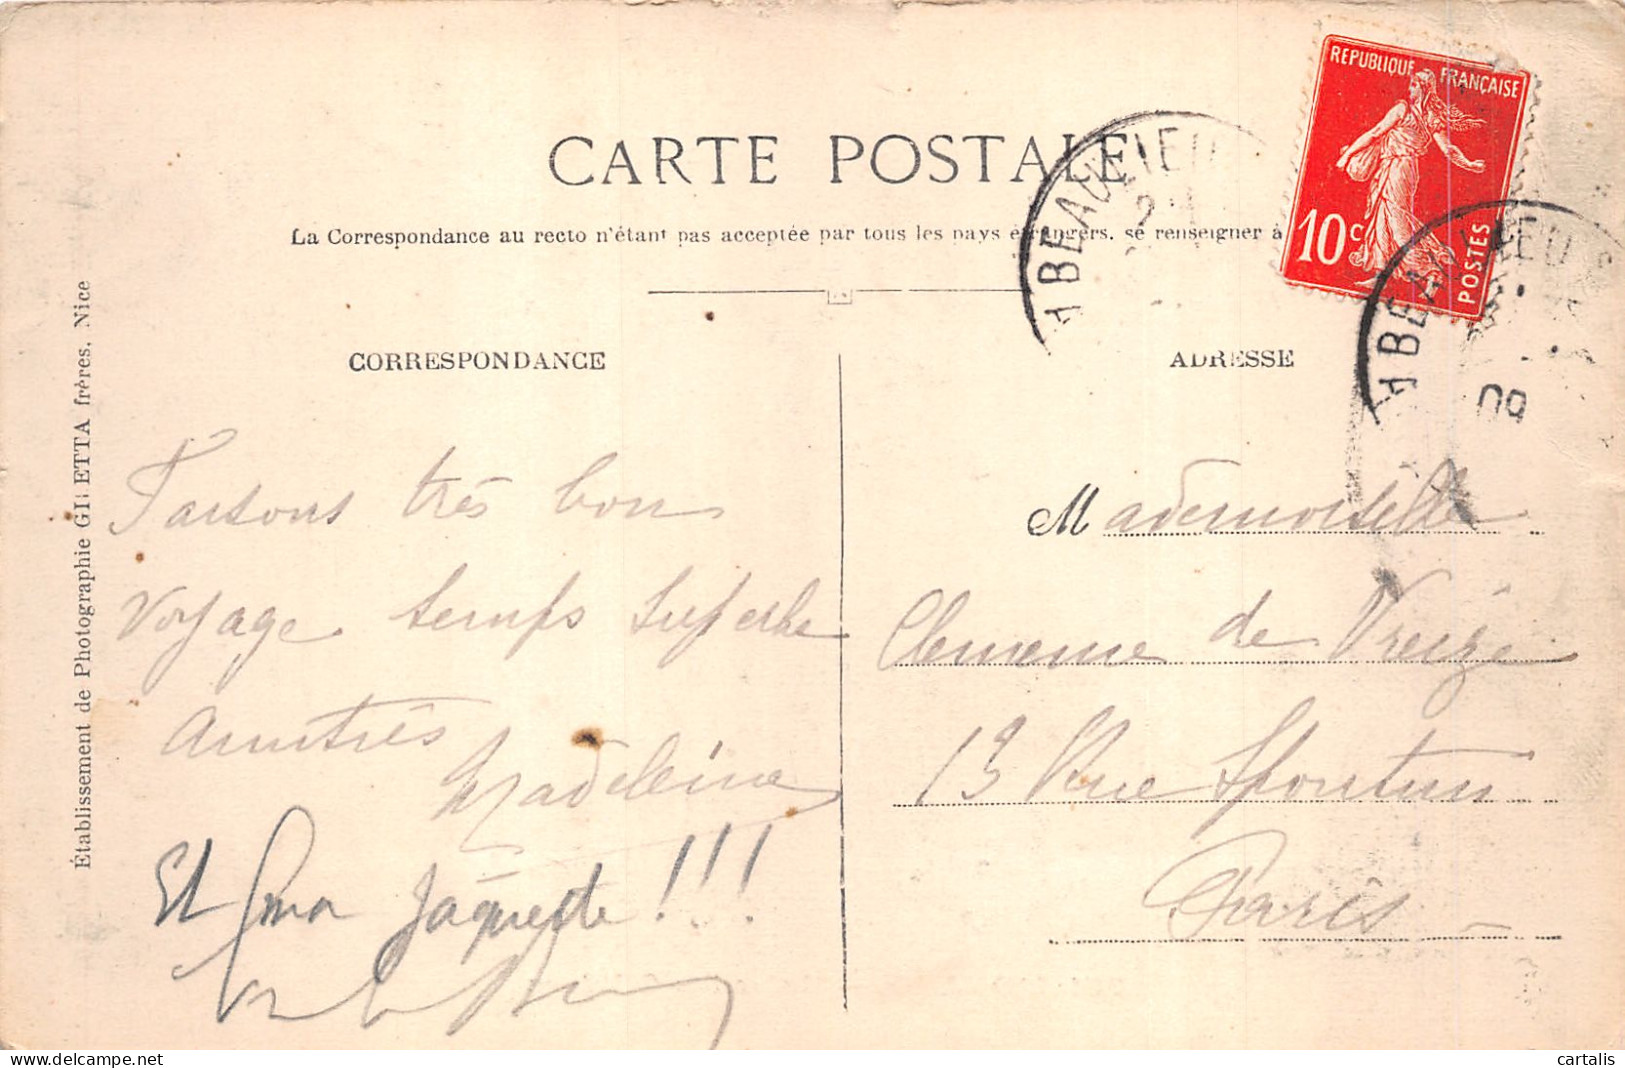 CARTE POSTALE
La Correspondance au recto n'étant pas acceptée par tous les pays étrangers, se renseigner à
REPUBLIQUE FRANÇAISE
10c
POSTES
BEAULIEU
2
BEAULIEU S
09
CORRESPONDANCE
ADRESSE
Faisons très bon
voyage temps superbe
amitiés
Madeleine
Et ma jaquette!!!
Mademoiselle
de
13 Rue Spontini
Paris
Établissement de Photographie GILETTA frères, Nice
cartalis